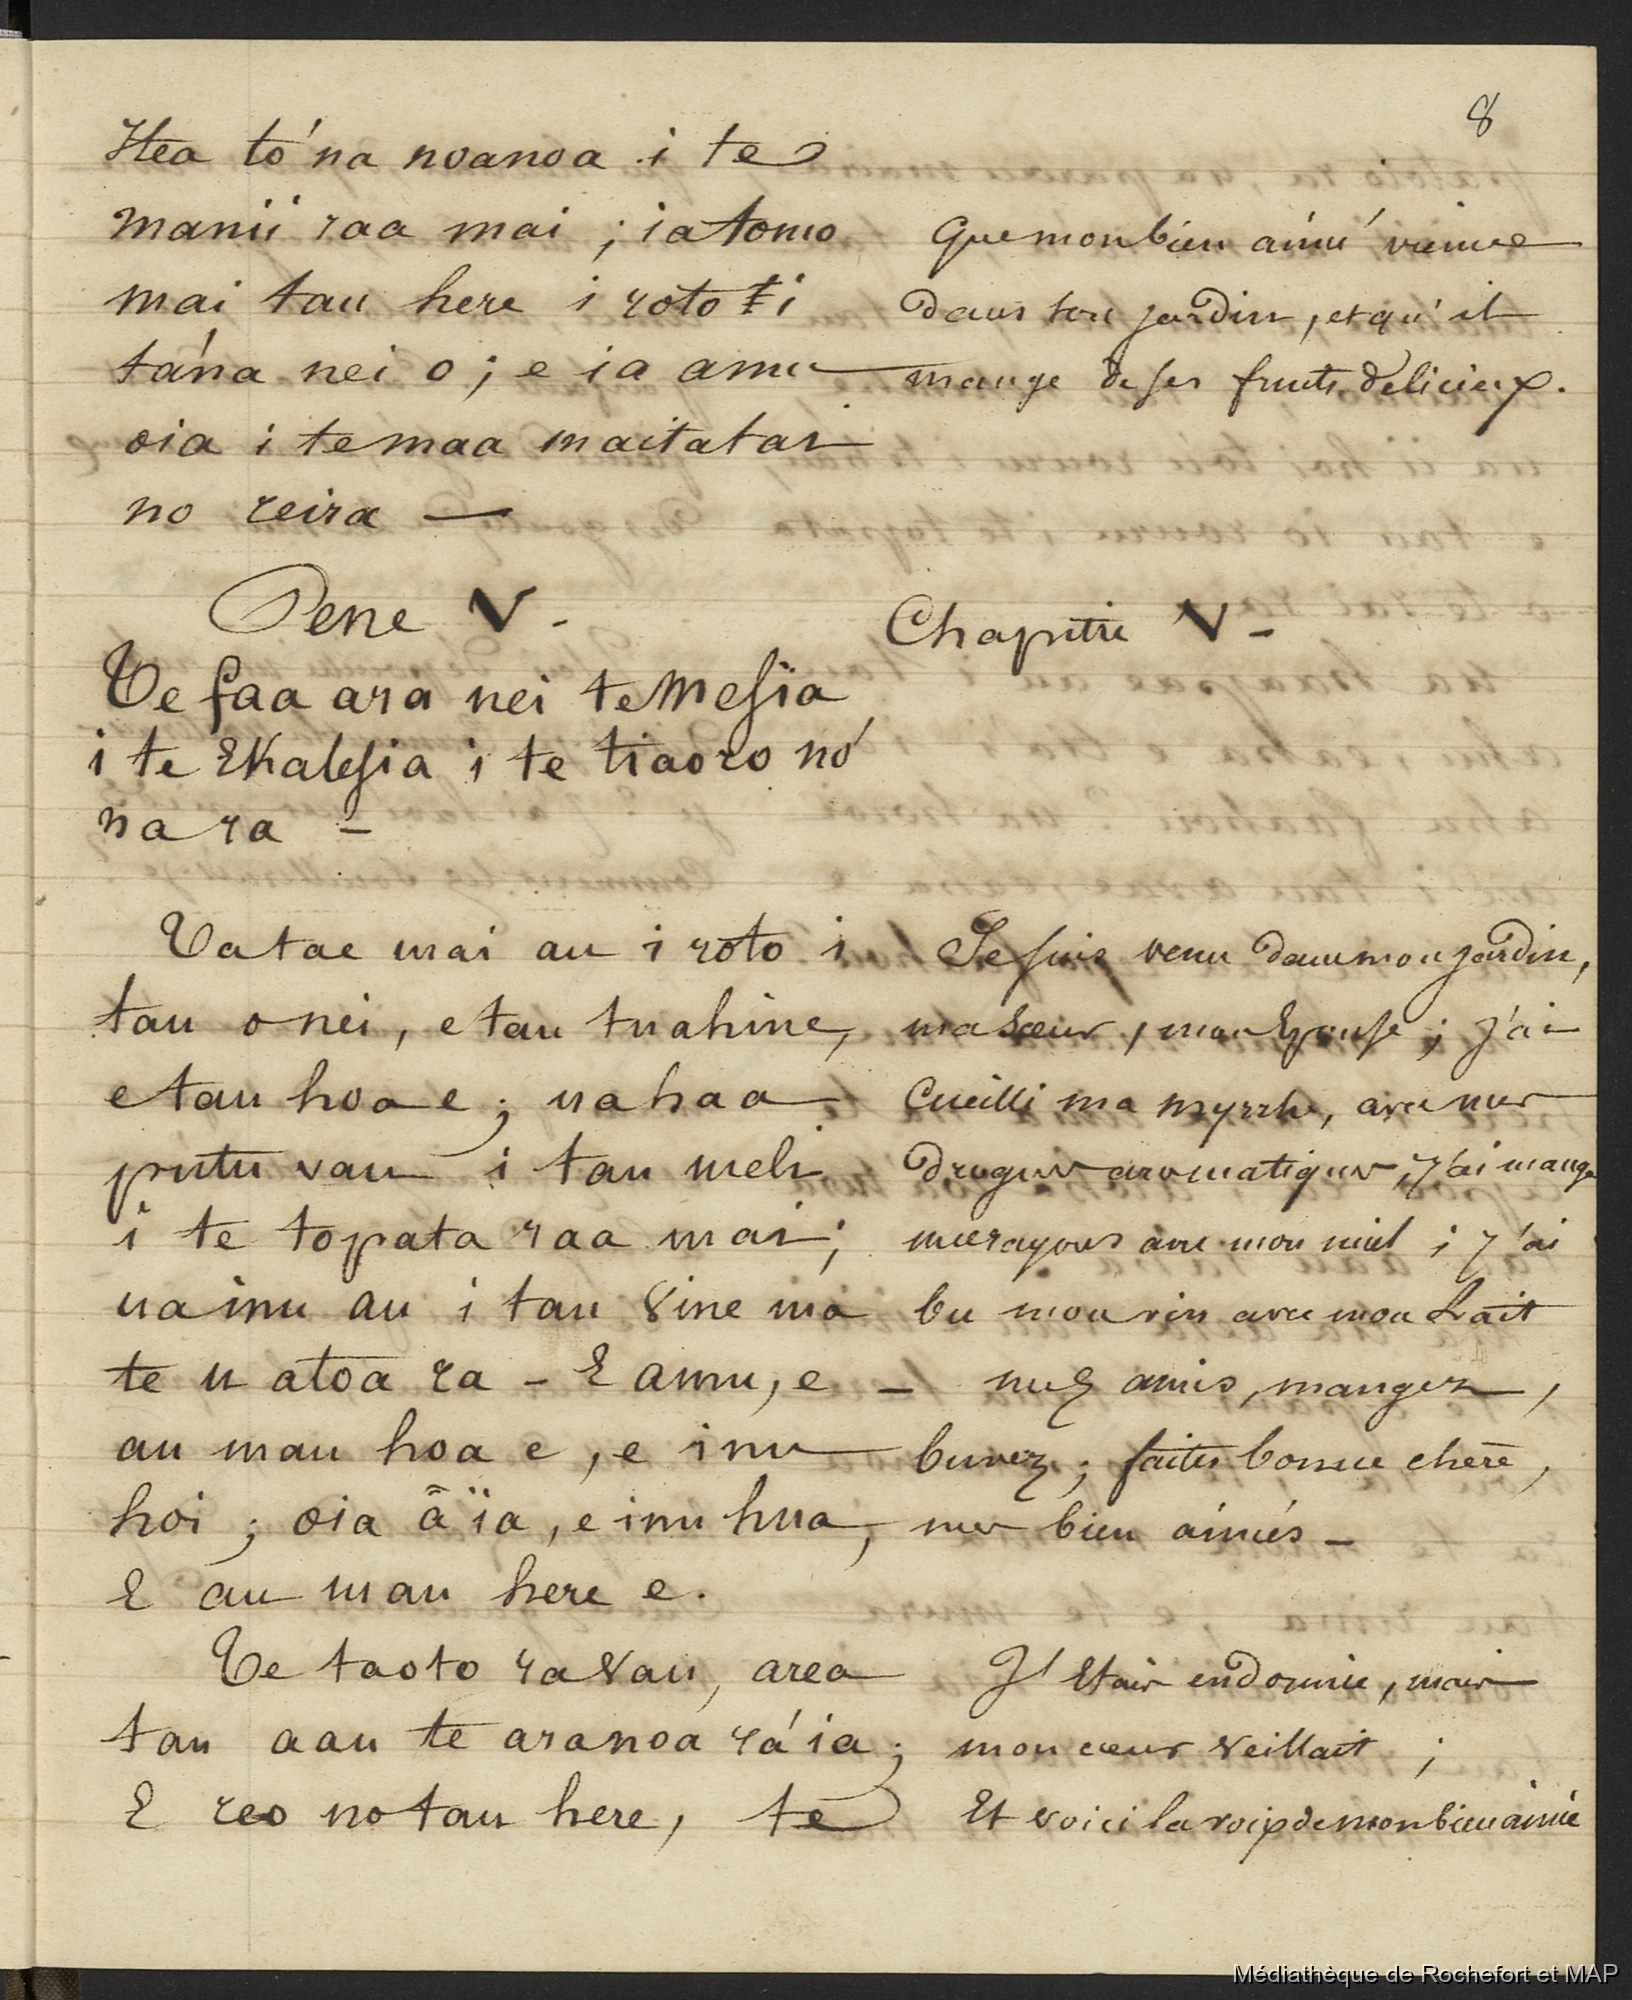 8
Itea to'na noanoa i te
manii raa mai ; ia tomo
mai tau here i roto i
ta'na nei o ; e ia amu
oia i te maa maitatai
no reira —
Que mon bien aimé vienne
Dans son jardin, et qu'il
mange de ses fruits délicieux.
Pene V -
Te faa ara nei te Mesia
i te Ekalesia i te tiaoro no'
na ra -
Chapitre V -
Ua tae mai au i roto i
tau o nei, e tau tuahine,
e tau hoa e ; ua haa
putu vau i tau meli
i te topata raa mai ;
ua inu au i tau vine ma
te u atoa ra - E amu, e
au mau hoa e, e inu
hoi ; oia ā ïa, e inu hua,
E au mau here e.
Je suis venu dans mon jardin,
ma Sœur, mon Epouse ; j'ai
Cueilli ma myrrhe, avec mes
Drogues aromatiques, j'ai mangé
mes rayons avec mon miel ; j'ai
bu mon vin avec mon Lait
- mes amis, mangez,
buvez ; faites bonne chère,
mes bien aimés -
Te taoto ra vau, area
tau aau te ara noa rá ia ;
E reo no tau here, te
J'Etais endormie, mais
mon cœur veillait ;
Et voici la voix de mon bien aimé
Médiathèque de Rochefort et MAP